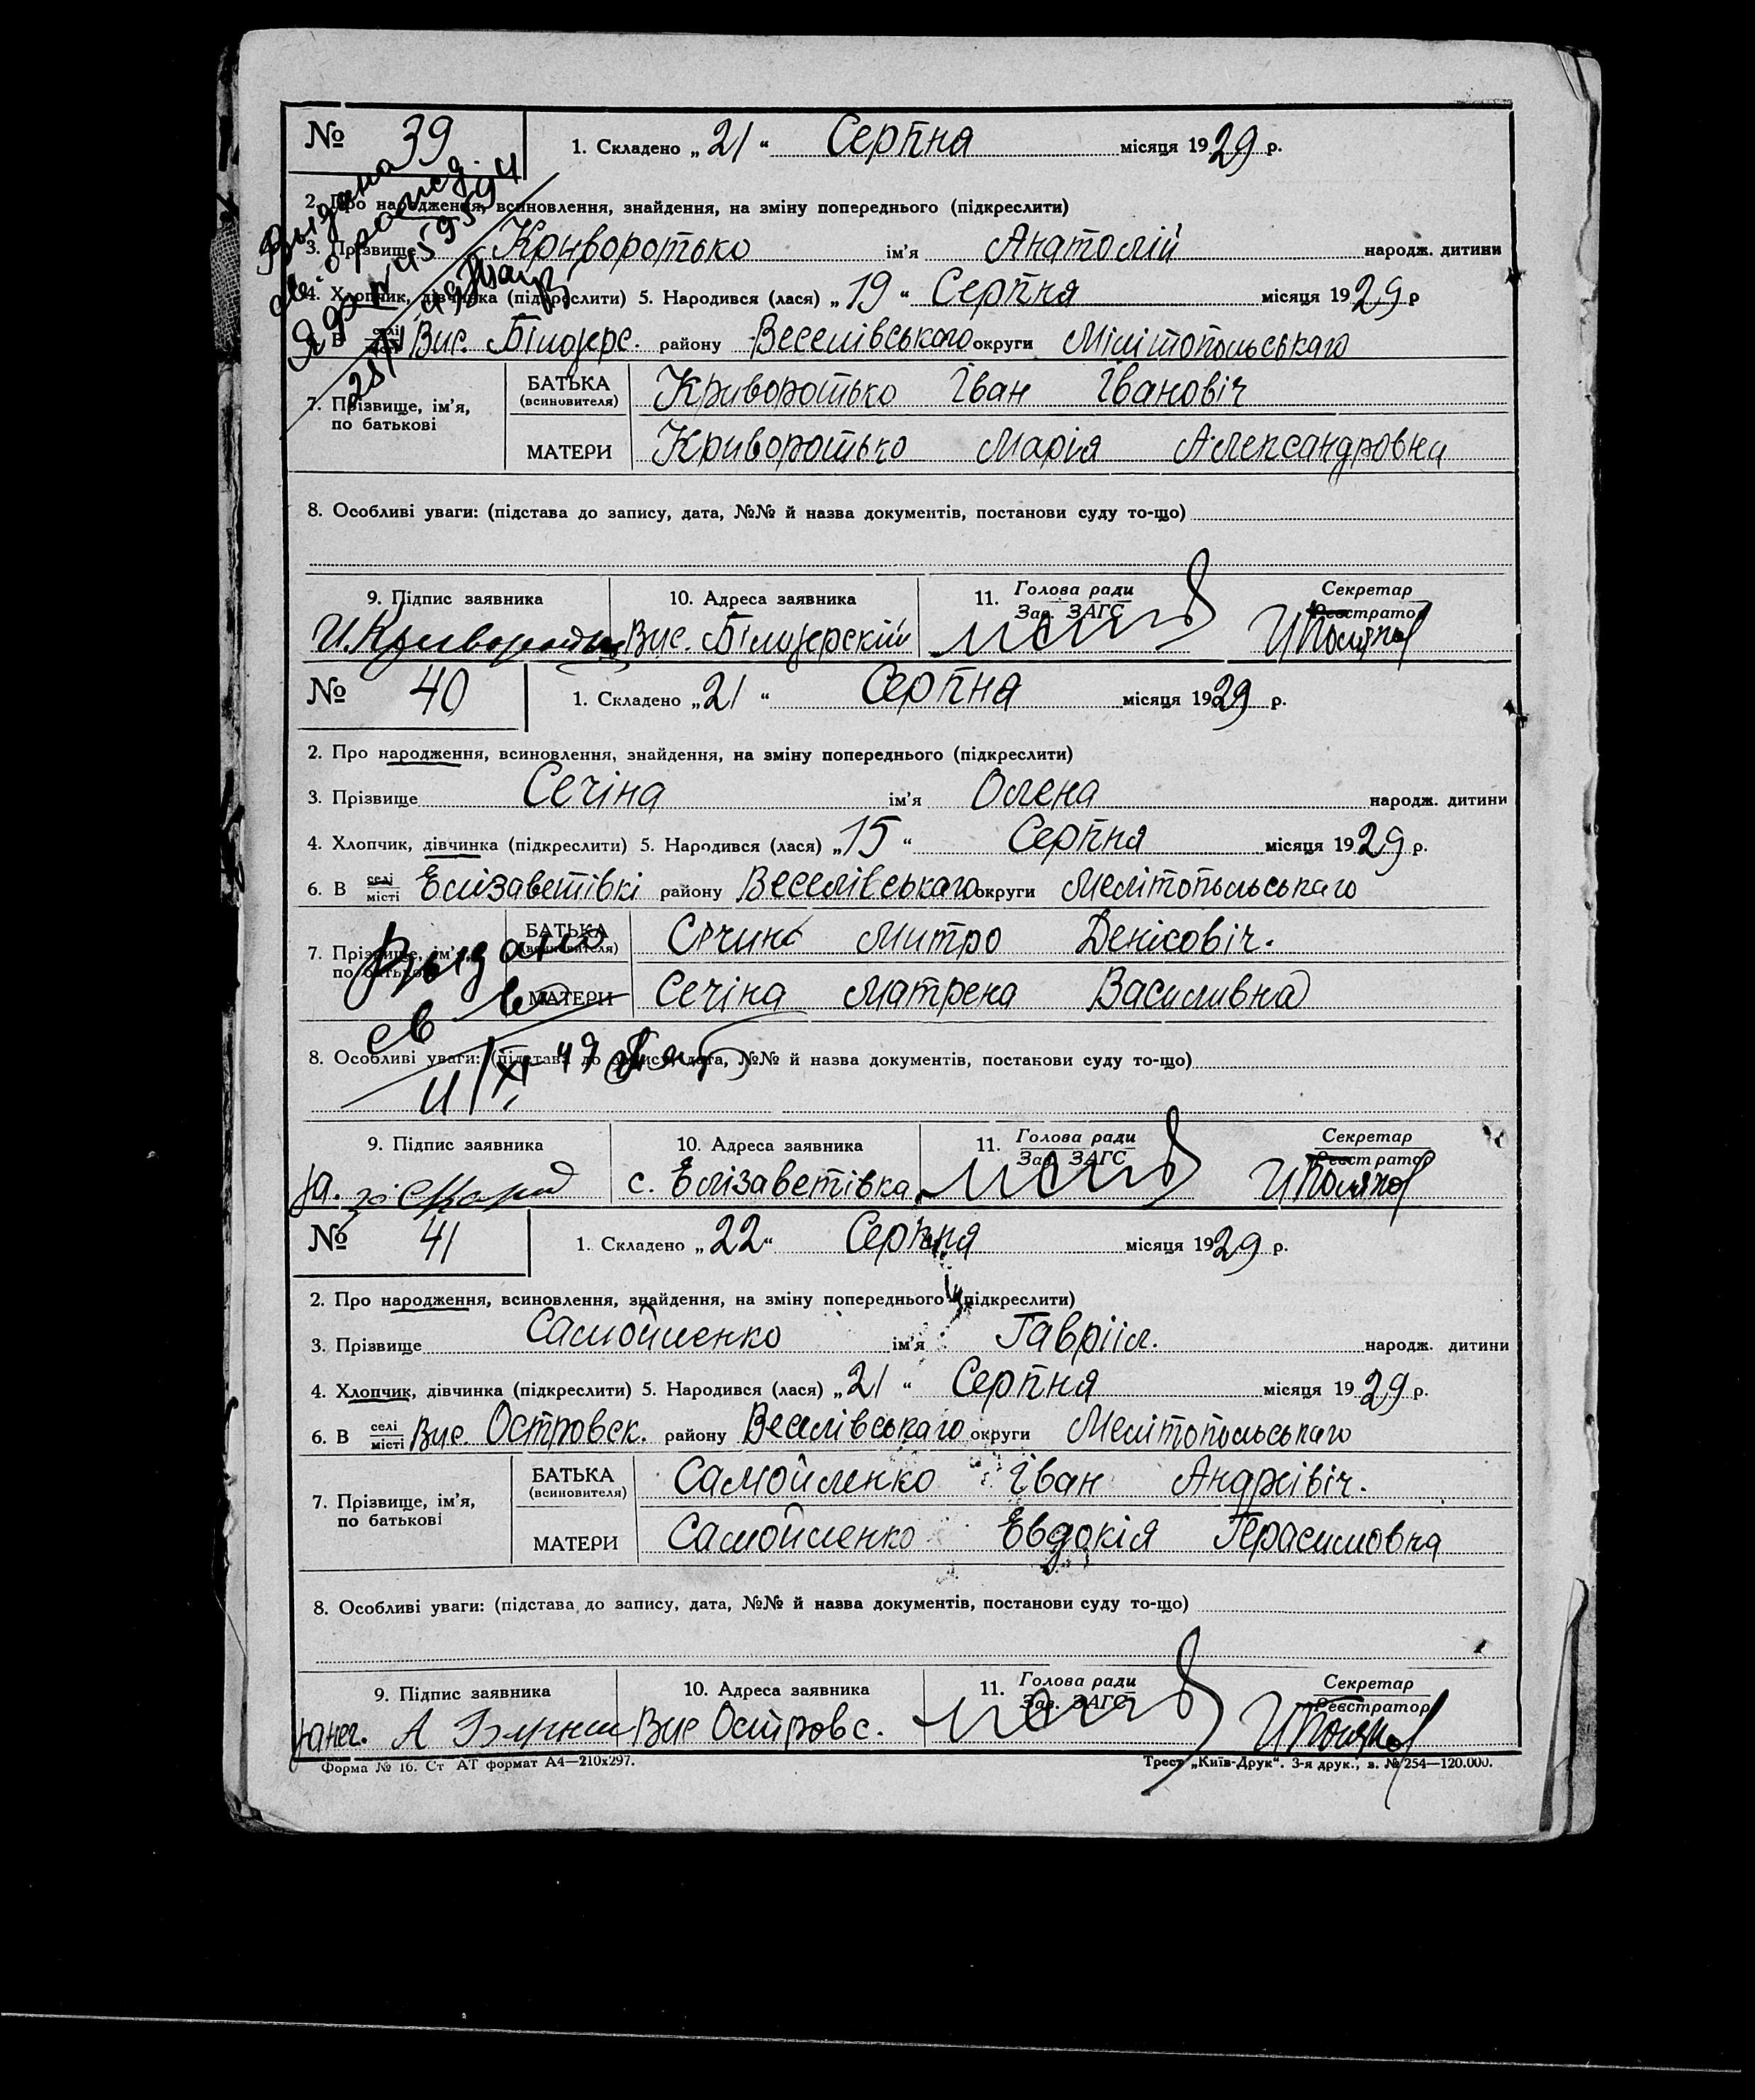 № 39
1. Складено „21“ Серпня місяця 1929 р.
2. Про народження, всиновлення, знайдення, на зміну попереднього (підкреслити)
3. Прізвище Криворотько ім’я Анатолій народж. дитини
4. Хлопчик, дівчинка (підкреслити) 5. Народився (лася) „19“ Серпня місяця 1929 р
6. В селі місті Вис. Білозерс. району Веселівського округи Мілітопольського
7. Прізвище, ім’я, по батькові
БАТЬКА (всиновителя) Криворотько Іван Івановіч
МАТЕРИ Криворотько Марія Александровна
Выдана
8. Особливі уваги: (підстава до запису, дата, №№ й назва документів, постанови суду то-що)
9. Підпис заявника 10. Адреса заявника 11. Голова ради Зав. ЗАГС Секретар Реєстратор
И. Криворотько Вис. Білозерскій
№ 40
1. Складено „21“ Серпня місяця 1929 р.
2. Про народження, всиновлення, знайдення, на зміну попереднього (підкреслити)
3. Прізвище Сечіна ім’я Олена народж. дитини
4. Хлопчик, дівчинка (підкреслити) 5. Народився (лася) „15“ Серпня місяця 1929 р.
6. В селі місті Елізаветівкі району Веселівського округи Мелітопольського
7. Прізвище, ім’я, по батькові
БАТЬКА (всиновителя) Сечин Митро Денісовіч.
МАТЕРИ Сечіна Матрена Василивна
Выдано
св во
8. Особливі уваги: (підстава до запису, дата, №№ й назва документів, постанови суду то-що)
9. Підпис заявника 10. Адреса заявника 11. Голова ради Зав. ЗАГС Секретар Реєстратор
с. Елізаветівка
№ 41
1. Складено „22“ Серпня місяця 1929 р.
2. Про народження, всиновлення, знайдення, на зміну попереднього (підкреслити)
3. Прізвище Самойленко ім’я Гавріил. народж. дитини
4. Хлопчик, дівчинка (підкреслити) 5. Народився (лася) „21“ Серпня місяця 1929 р.
6. В селі місті Вис. Островск. району Веселівського округи Мелітопольського
7. Прізвище, ім’я, по батькові
БАТЬКА (всиновителя) Самойленко Іван Андрєівіч.
МАТЕРИ Самойленко Евдокія Герасимовна
8. Особливі уваги: (підстава до запису, дата, №№ й назва документів, постанови суду то-що)
9. Підпис заявника 10. Адреса заявника 11. Голова ради Зав. ЗАГС Секретар Реєстратор
Вис Островс.
Форма № 16. Ст АТ формат А4—210х297.
Трест „Київ-Друк“. 3-я друк., з. № 254—120.000.